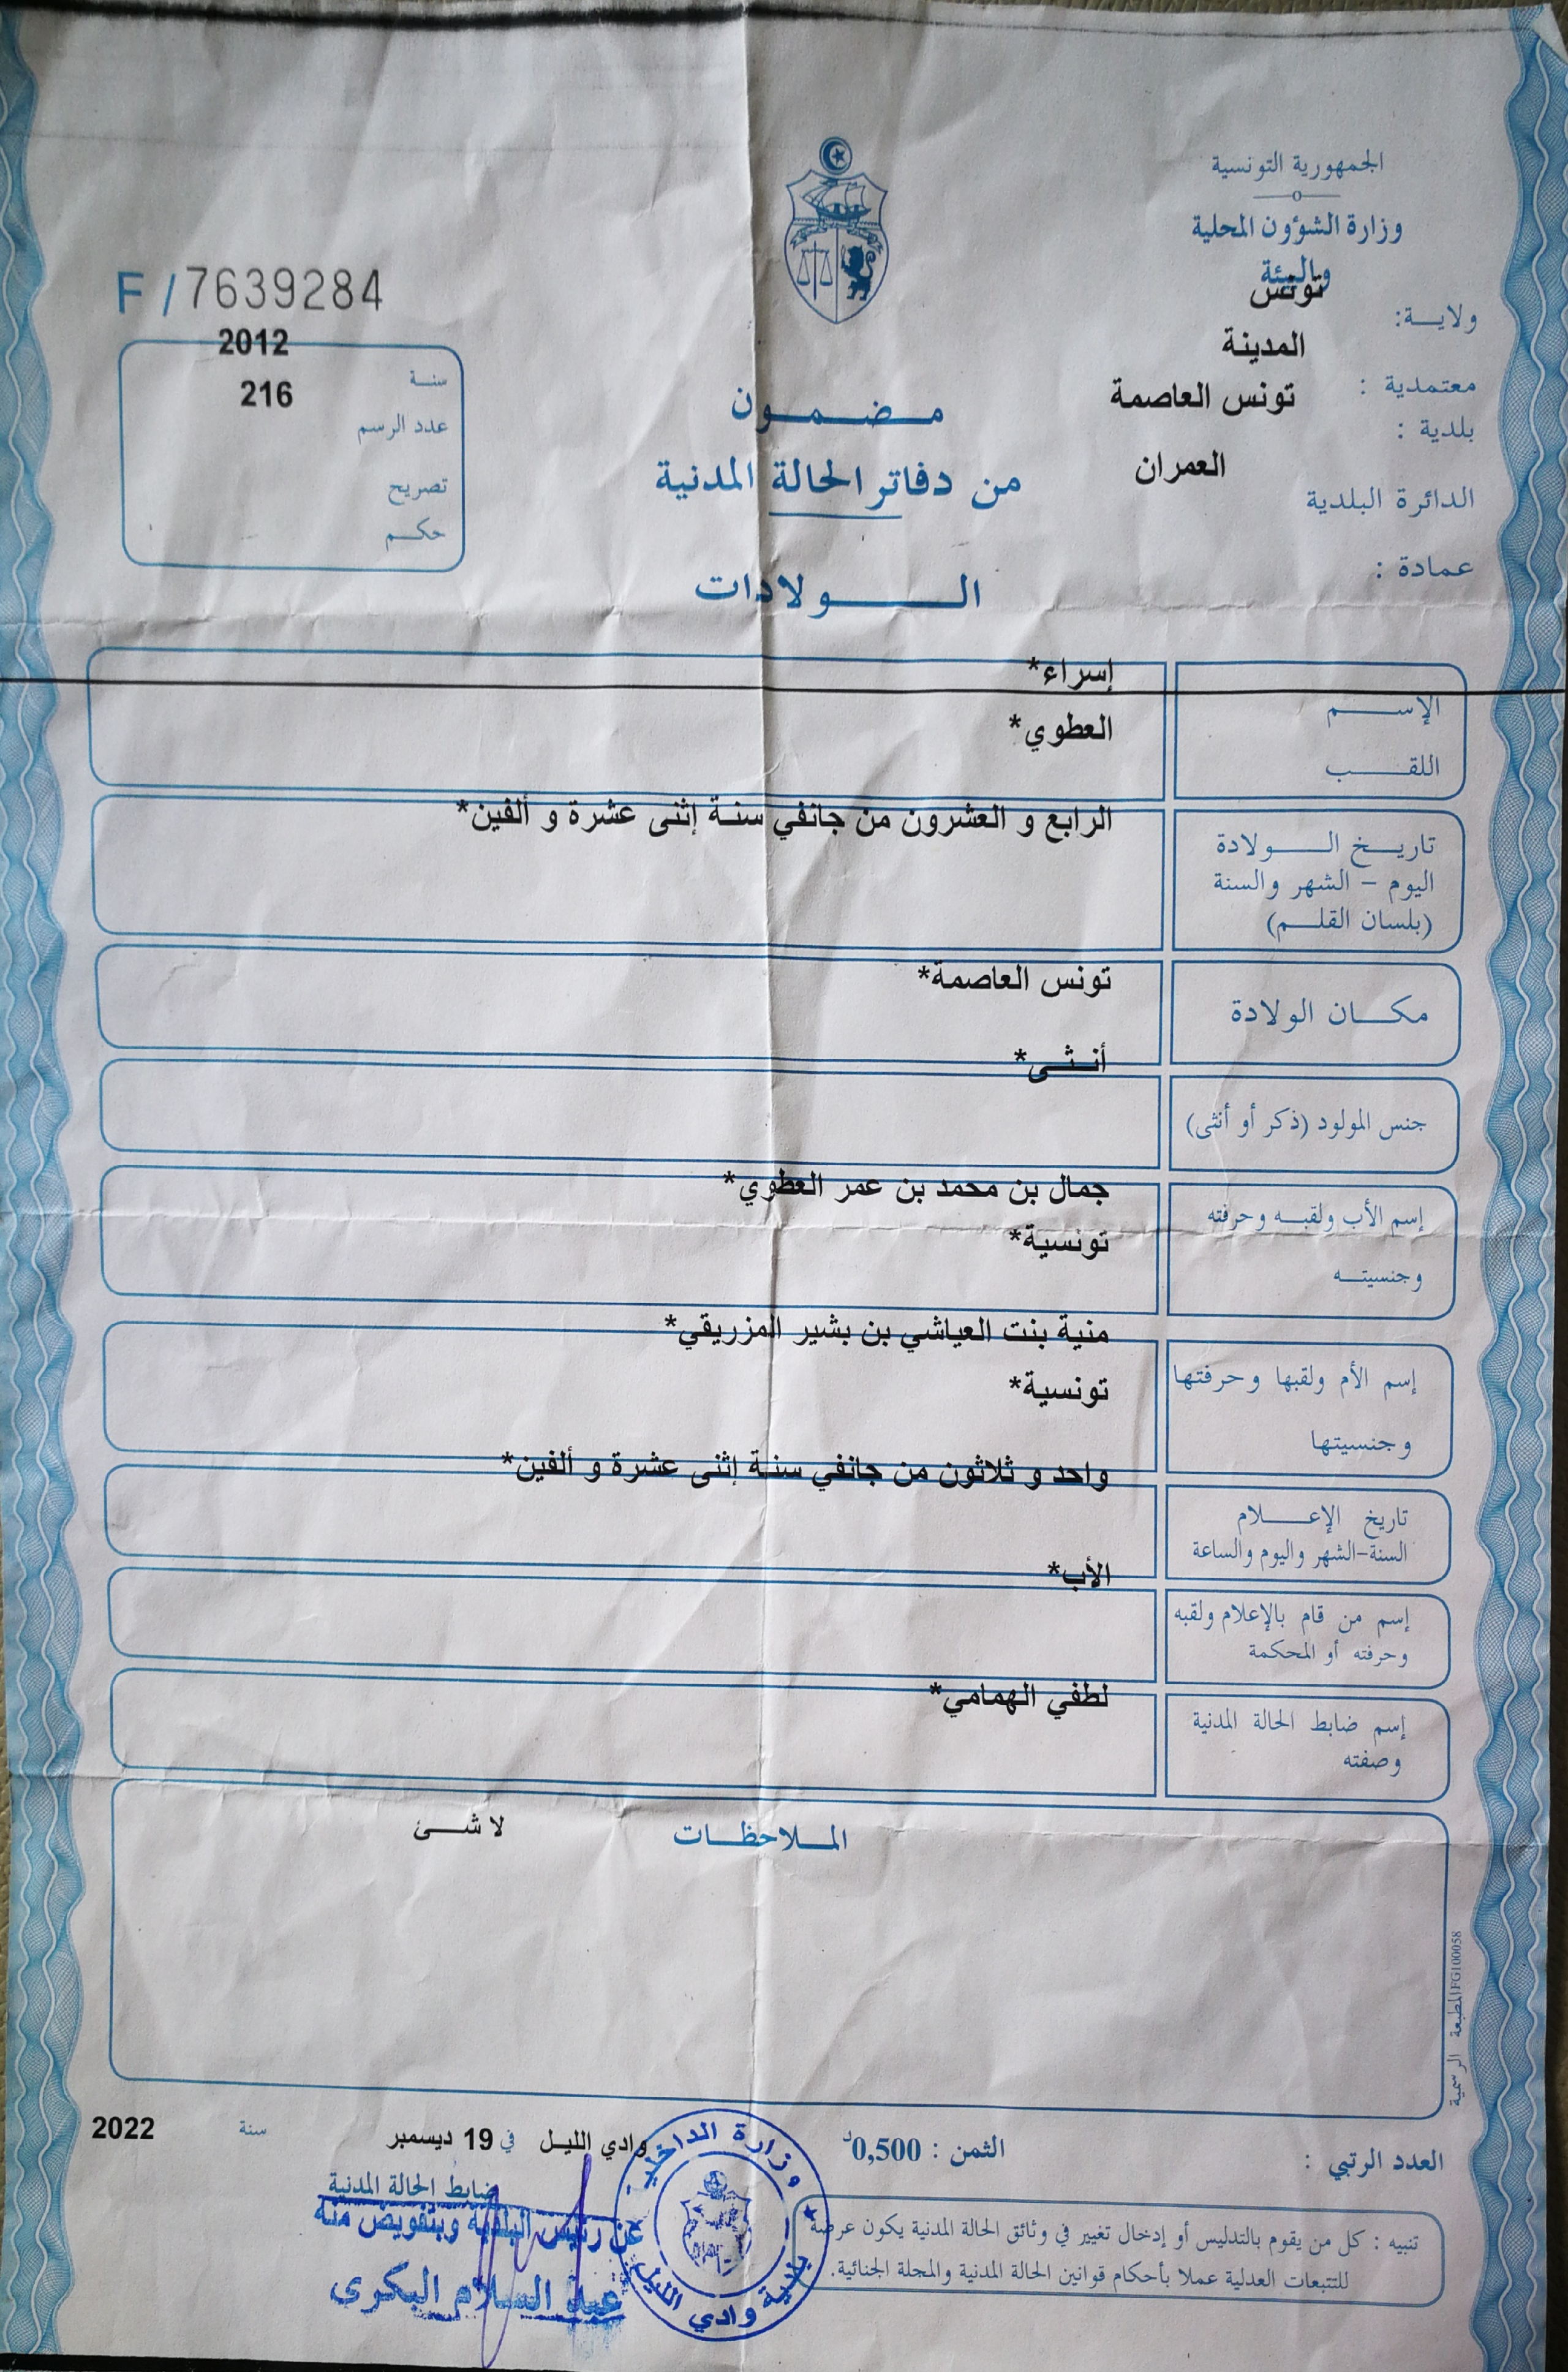 الجمهورية التونسية
وزارة الشؤون المحلية
والبيئة
ولاية: تونس
المدينة
معتمدية :
تونس العاصمة
بلدية :
العمران
الدائرة البلدية
عمادة :
F / 7639284
2012
سنة
216
عدد الرسم
تصريح
حكم
مضمون
من دفاتر الحالة المدنية
الولادات
إسراء*
الإسم
العطوي*
اللقب
الرابع و العشرون من جانفي سنة إثنى عشرة و ألفين*
تاريخ الولادة
اليوم - الشهر والسنة
(بلسان القلم)
تونس العاصمة*
مكان الولادة
أنثى*
جنس المولود (ذكر أو أنثى)
جمال بن محمد بن عمر العطوي*
إسم الأب ولقبه وحرفته
تونسية*
وجنسيته
منية بنت العياشي بن بشير المزريقي*
إسم الأم ولقبها وحرفتها
تونسية*
وجنسيتها
واحد و ثلاثون من جانفي سنة إثنى عشرة و ألفين*
تاريخ الإعلام
السنة-الشهر واليوم والساعة
الأب*
إسم من قام بالإعلام ولقبه
وحرفته أو المحكمة
لطفي الهمامي*
إسم ضابط الحالة المدنية
وصفته
الملاحظات لا شئ
المطبعة الرسمية FG100058
العدد الرتبي :
الثمن : 0,500د
وادي الليل في 19 ديسمبر سنة 2022
ضابط الحالة المدنية
عن رئيس البلدية وبتفويض منه
عبد السلام البكري
وزارة الداخلية
بلدية وادي الليل
تنبيه : كل من يقوم بالتدليس أو إدخال تغيير في وثائق الحالة المدنية يكون عرضة
للتتبعات العدلية عملا بأحكام قوانين الحالة المدنية والمجلة الجنائية.